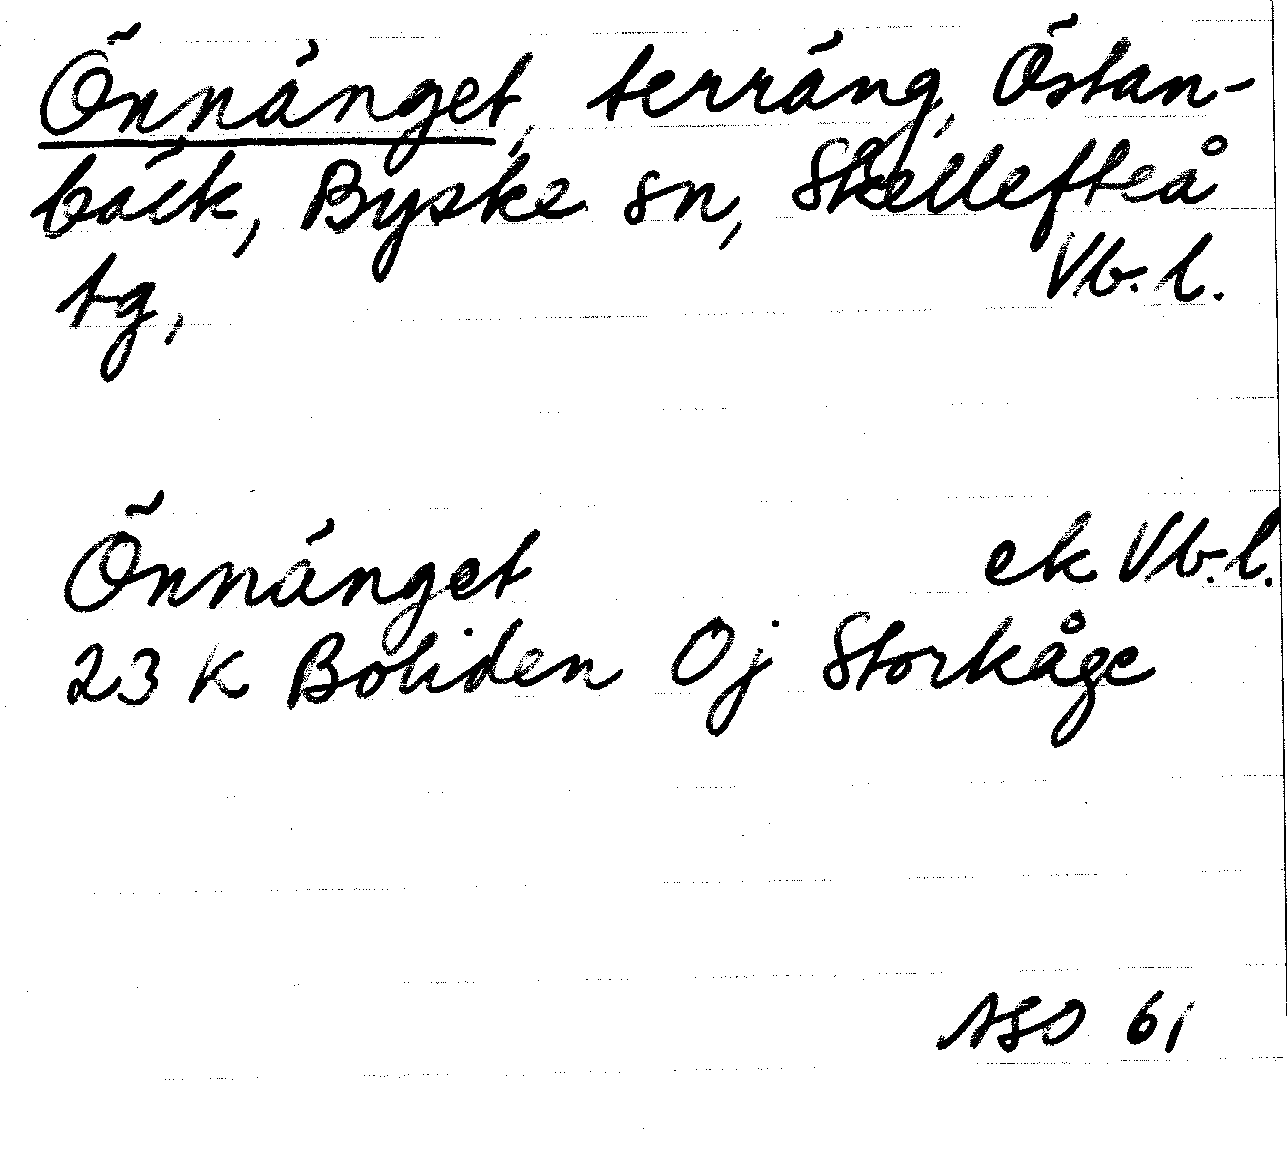 Önnänget, terräng, Östan-
bäck, Byske sn, Skellefteå
tg, Vb. l.
Önnänget ek Vb. l.
23 K Boliden Oj Storkåge
ASD 61